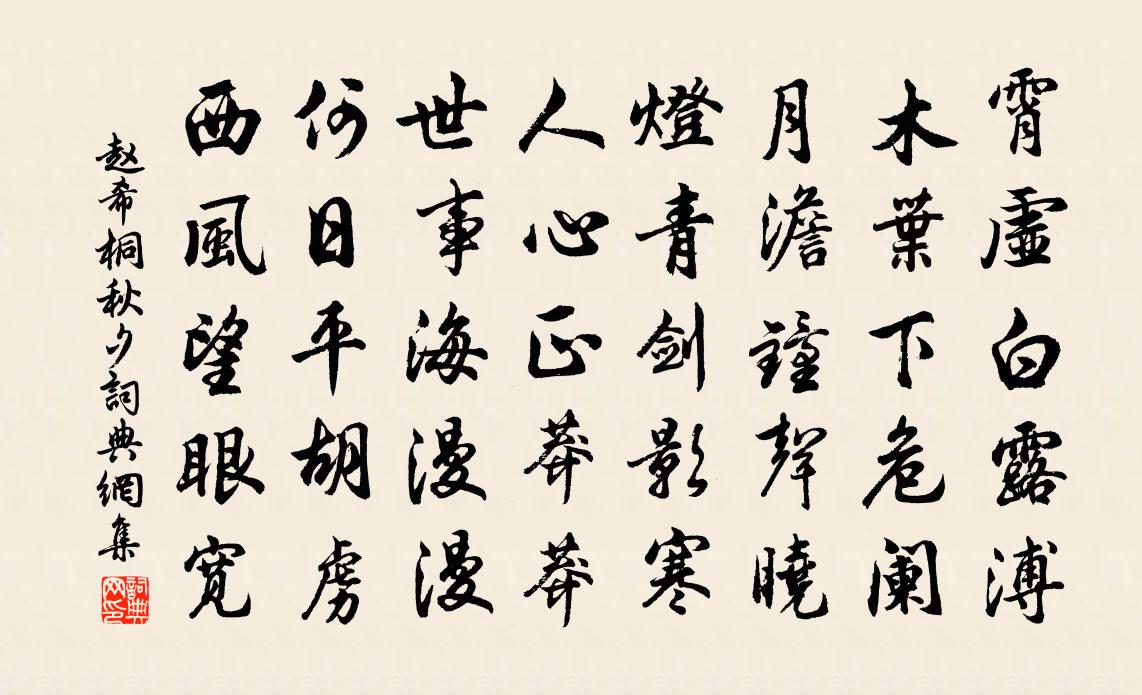 霄虛白露溥
木葉下危阑
月澹鐘聲曉
燈青剑影寒
人心正莽莽
世事海漫漫
何日平胡虏
西風望眼宽
赵希桐秋夕詞典網集
詞典网印